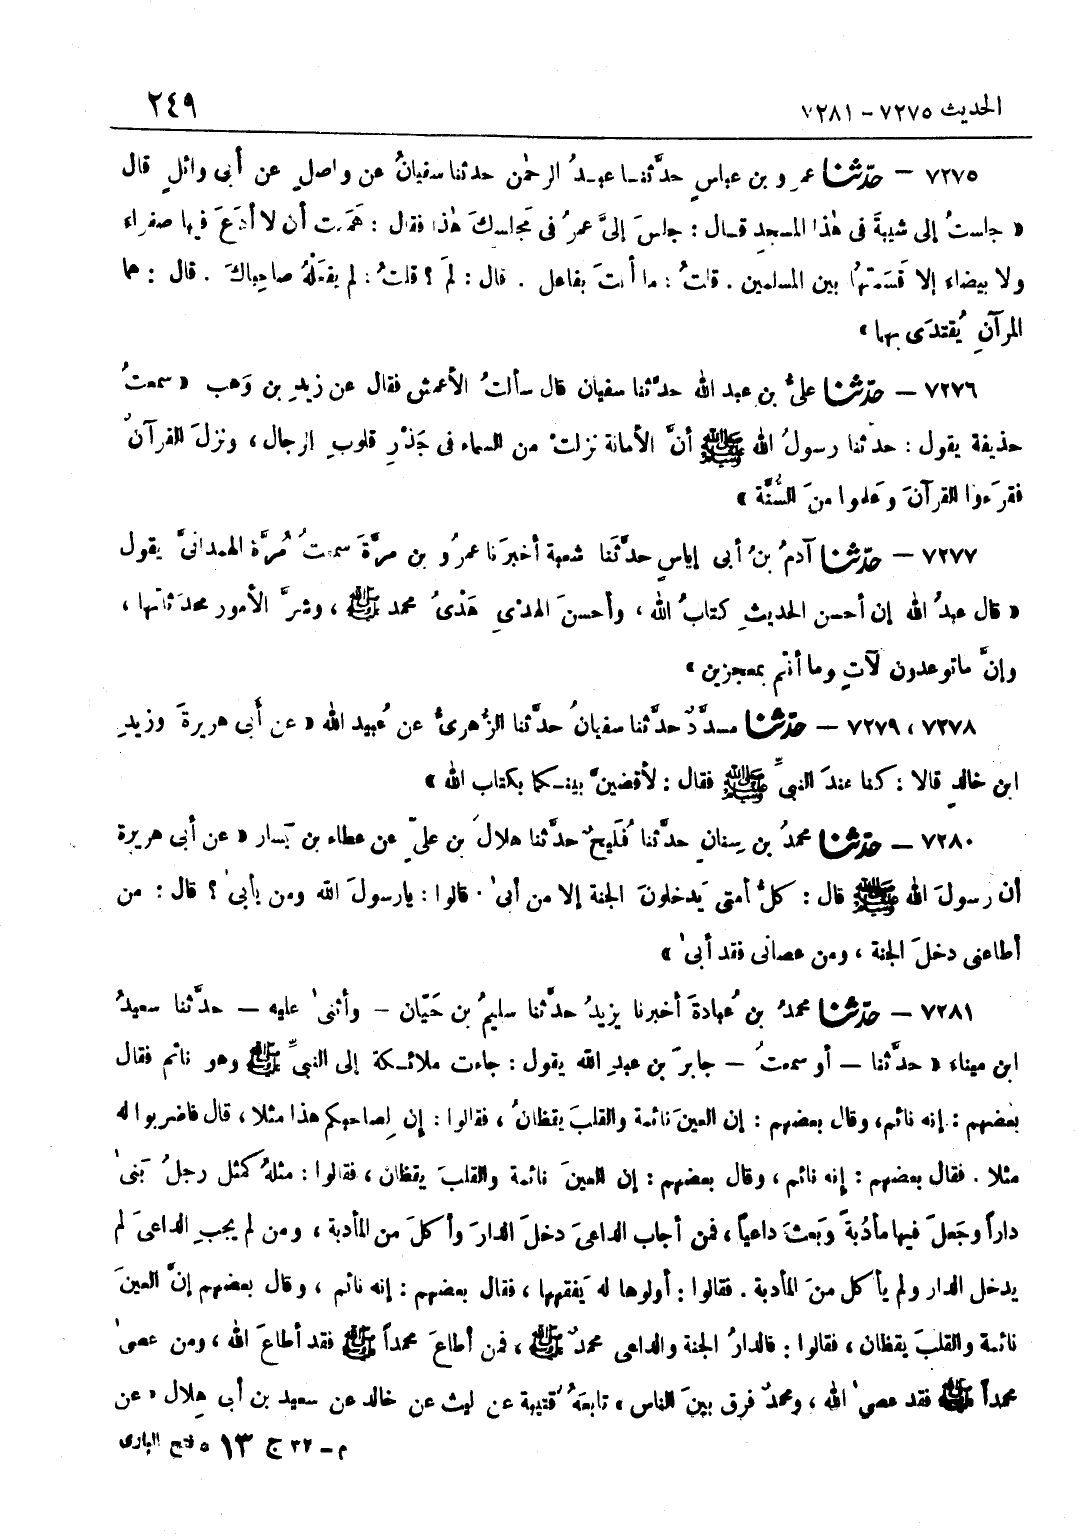 الحديث ٧٢٧٥ - ٧٢٨١
٢٤٩
٧٢٧٥ – حدّثنا عمرو بن عباسٍ حدَّثنا عبدُ الرحمٰن حدثنا سفيانُ عن واصلٍ عن أبى وائلٍ قال
« جلستُ إلى شيبةَ فى هٰذا المسجدِ قال : جلسَ إلىَّ عمرُ فى مجلسكَ هٰذا فقال : هَممت أن لا أدَعَ فيها صفراء
ولا بيضاء إلا قَسَمتها بين المسلمين . قلتُ : ما أنتَ بفاعل . قال : لمَ ؟ قلتُ : لم يفعَلْهُ صاحِباكَ . قال : هما
المرآنِ يُقتدَى بهما »
٧٢٧٦ – حدّثنا علىُّ بن عبد الله حدَّثنا سفيان قال سألتُ الأعمش فقال عن زيدِ بن وَهب « سمعتُ
حذيفة يقول : حدثنا رسولُ الله ﷺ أنَّ الأمانة نزلتْ من السماء فى جَذْرِ قلوبِ الرجال ، ونزلَ القرآنُ
فقرَءوا القرآنَ وعَلموا منَ السُّنَّة »
٧٢٧٧ – حدّثنا آدمُ بنُ أبى إياسٍ حدَّثَنا شعبة أخبرَنا عمرُو بن مرَّةَ سمعتُ مُرَّة الهمدانىَّ يقول
« قال عبدُ الله إن أحسن الحديثِ كتابُ الله ، وأحسنَ الهدْىِ هَدْىُ محمد ﷺ ، وشرَّ الأمور محدَثاتها ،
وإنَّ ماتوعدون لَآتٍ وما أنتم بمعجزين »
٧٢٧٨ ، ٧٢٧٩ – حدّثنا مسدَّدٌ حدَّثنا سفيانُ حدَّثنا الزُّهرىُّ عن عُبيد الله « عن أبى هريرةَ وزيدِ
ابن خالدٍ قالا : كنا عندَ النبىِّ ﷺ فقال : لأقضينَّ بينكما بكتاب الله »
٧٢٨٠ – حدّثنا محمدُ بن سِنانٍ حدَّثنا فُلَيحٌ حدَّثنا هلالُ بن علىّ عن عطاء بن يَسار « عن أبى هريرة
أن رسولَ الله ﷺ قال : كلُّ أمتى يَدخلونَ الجنة إلا من أبىٰ . قالوا : يارسولَ الله ومن يأبىٰ ؟ قال : من
أطاعنى دخلَ الجنة ، ومن عصانى فقد أبىٰ »
٧٢٨١ – حدّثنا محمدُ بن عُبادةَ أخبرنا يزيدُ حدَّثنا سليمُ بن حَيّان – وأثنىٰ عليه – حدَّثنا سعيدُ
ابن ميناء « حدَّثنا – أو سمعتُ – جابرَ بن عبدِ الله يقول : جاءت ملائكة إلى النبىِّ ﷺ وهو نائم فقال
بعضهم : إنه نائم، وقال بعضهم : إن العينَ نائمة والقلبَ يقظانُ ، فقالوا : إن لِصاحبكم هذا مثلا ، قال فاضربوا له
مثلا . فقال بعضهم : إنه نائم ، وقال بعضهم : إن العينَ نائمة والقلبَ يقظان ، فقالوا : مثلهُ كمثل رجلُ بَنىٰ
داراً وجَعلَ فيها مأدُبةً وبَعثَ داعياً ، فمن أجاب الداعىَ دخلَ الدارَ وأكلَ من المأدبة ، ومن لم يجبِ الداعىَ لم
يدخل الدار ولم يأكل منَ المأدبة . فقالوا : أولوها له يَفقهها ، فقال بعضهم : إنه نائم ، وقال بعضهم إنَّ العينَ
نائمة والقلبَ يقظان ، فقالوا : فالدارُ الجنة والداعى محمدٌ ﷺ ، فمن أطاعَ محمداً ﷺ فقد أطاعَ الله ، ومن عصىٰ
محمداً ﷺ فقد عصىٰ الله ، ومحمدٌ فرق بينَ الناس » تابعَهُ قتيبة عن ليث عن خالد عن سعيد بن أبى هِلال « عن
م - ٣٢ ج ١٣ ٥ فتح البارى